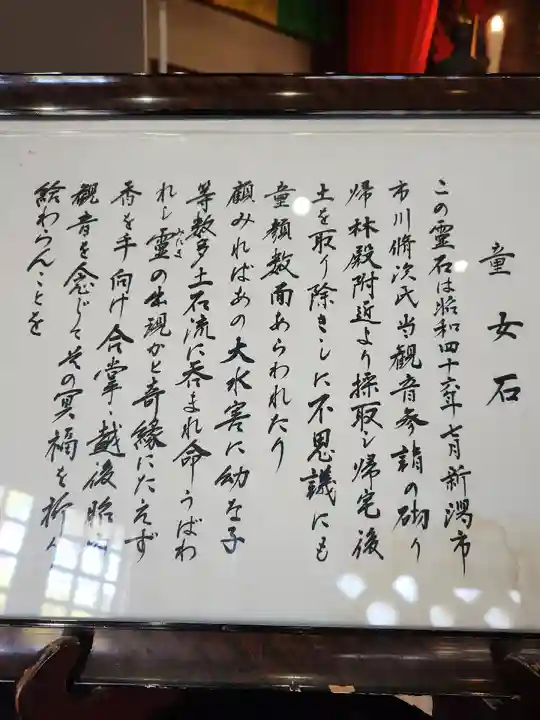 童女石
この霊石は昭和四十六年七月新潟市
市川脩次氏当観音参詣の砌り
帰林殿附近より採取し帰宅後
土を取り除きしに不思議にも
童顔数面あらわれたり
顧みればあの大水害に幼な子
等数多土石流に呑まれ命うばわ
れし霊の出現かと奇縁にたえず
みたま
香を手向け合掌、越後
観音を念じてその冥福を祈り
給わらんことを